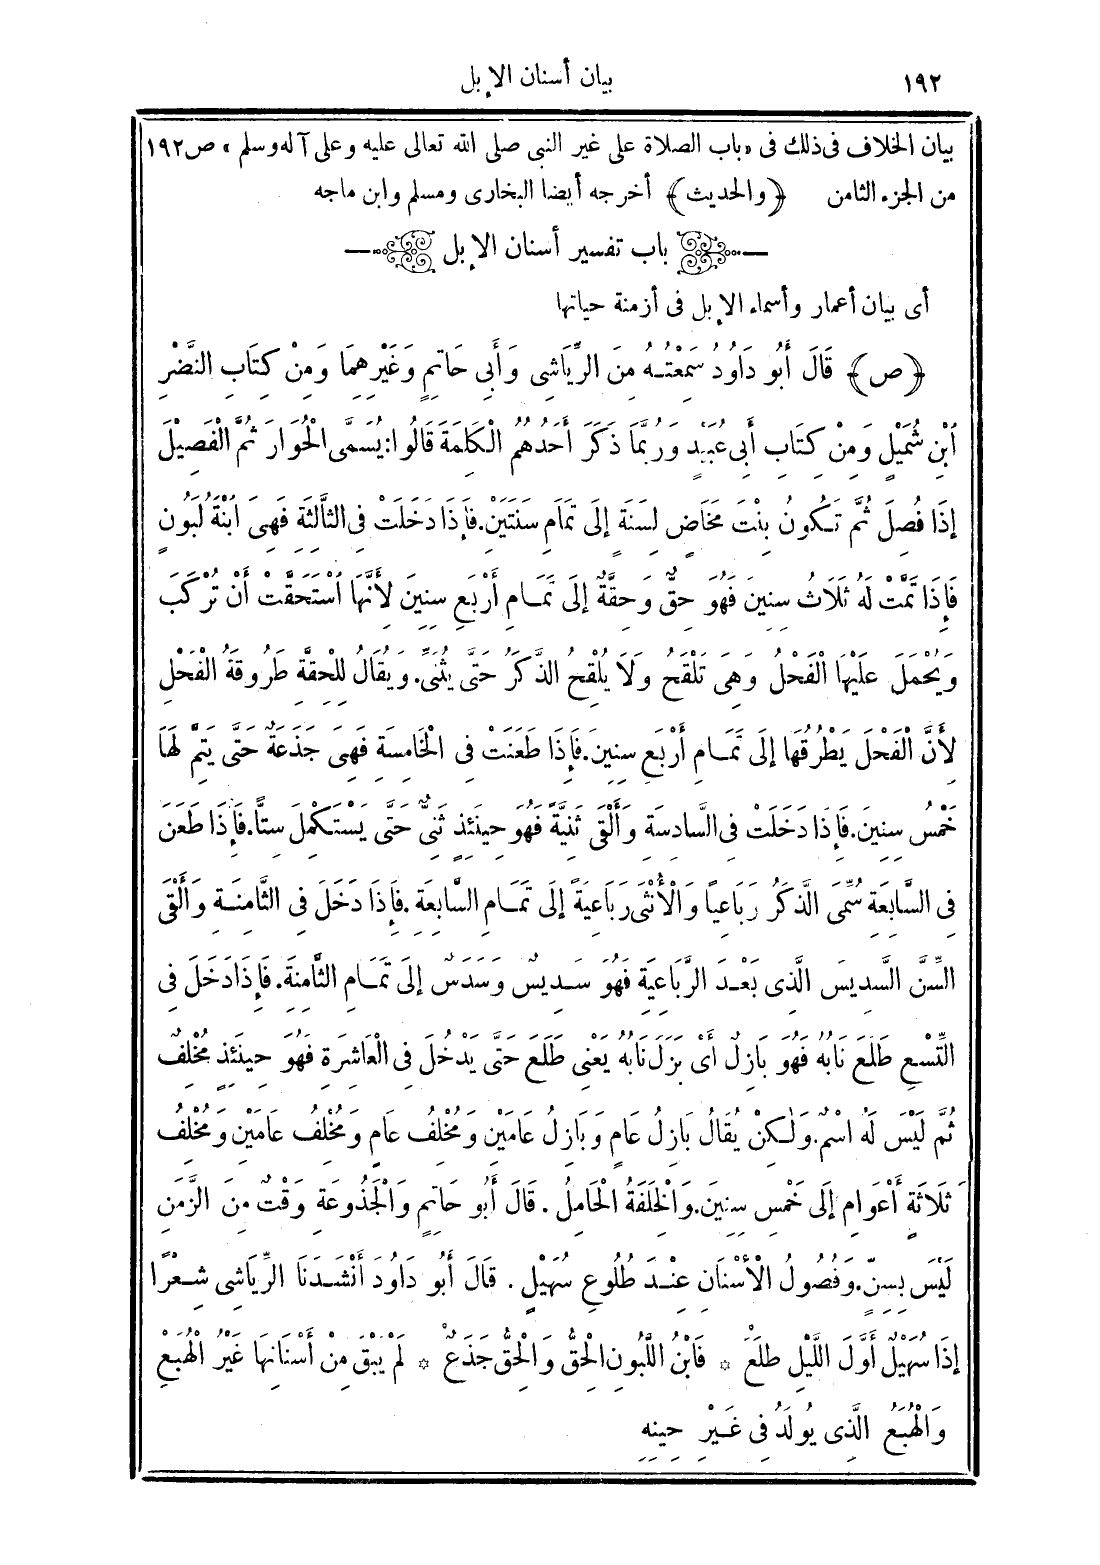 ١٩٢ بيان أسنان الإبل
بيان الخلاف فى ذلك فى «باب الصلاة على غير النبى صلى الله تعالى عليه وعلى آله وسلم» ص ١٩٢
من الجزء الثامن ﴿والحديث﴾ أخرجه أيضا البخارى ومسلم وابن ماجه
باب تفسير أسنان الإبل
أى بيان أعمار وأسماء الإبل فى أزمنة حياتها
﴿ص﴾ قَالَ أَبُو دَاوُدَ سَمِعْتُهُ مِنَ الرِّيَاشِى وَأَبِى حَاتِمٍ وَغَيْرِهِمَا وَمِنْ كِتَابِ النَّضْرِ
ابْنِ شُمَيْلٍ وَمِنْ كِتَابِ أَبِى عُبَيْدٍ وَرُبَّمَا ذَكَرَ أَحَدُهُمُ الْكَلِمَةَ قَالُوا: يُسَمَّى الْحُوَارَ ثُمَّ الْفَصِيْلَ
إِذَا فُصِلَ ثُمَّ تَكُونُ بِنْتَ مَخَاضٍ لِسَنَةٍ إِلَى تَمَامِ سَنَتَيْنِ. فَإِذَا دَخَلَتْ فِى الثَّالِثَةِ فَهِىَ ابْنَةُ لَبُونٍ
فَإِذَا تَمَّتْ لَهُ ثَلَاثُ سِنِينَ فَهُوَ حِقٌّ وَحِقَّةٌ إِلَى تَمَامِ أَرْبَعِ سِنِينَ لِأَنَّهَا اسْتَحَقَّتْ أَنْ تُرْكَبَ
وَيُحْمَلَ عَلَيْهَا الْفَحْلُ وَهِىَ تَلْقَحُ وَلَا يُلْقِحُ الذَّكَرُ حَتَّى يُثَنِّىَ. وَيُقَالُ لِلْحِقَّةِ طَرُوقَةُ الْفَحْلِ
لِأَنَّ الْفَحْلَ يَطْرُقُهَا إِلَى تَمَامِ أَرْبَعِ سِنِينَ. فَإِذَا طَعَنَتْ فِى الْخَامِسَةِ فَهِىَ جَذَعَةٌ حَتَّى يَتِمَّ لَهَا
خَمْسُ سِنِينَ. فَإِذَا دَخَلَتْ فِى السَّادِسَةِ وَأَلْقَى ثَنِيَّةً فَهُوَ حِينَئِذٍ ثَنِىٌّ حَتَّى يَسْتَكْمِلَ سِتًّا. فَإِذَا طَعَنَ
فِى السَّابِعَةِ سُمِّىَ الذَّكَرُ رَبَاعِياً وَالْأُنْثَى رَبَاعِيَةً إِلَى تَمَامِ السَّابِعَةِ. فَإِذَا دَخَلَ فِى الثَّامِنَةِ وَأَلْقَى
السِّنَّ السَّدِيسَ الَّذِى بَعْدَ الرَّبَاعِيَةِ فَهُوَ سَدِيسٌ وَسَدَسٌ إِلَى تَمَامِ الثَّامِنَةِ. فَإِذَا دَخَلَ فِى
التِّسْعِ طَلَعَ نَابُهُ فَهُوَ بَازِلٌ أَىْ بَزَلَ نَابُهُ يَعْنِى طَلَعَ حَتَّى يَدْخُلَ فِى الْعَاشِرَةِ فَهُوَ حِينَئِذٍ مُخْلِفٌ
ثُمَّ لَيْسَ لَهُ اسْمٌ. وَلَكِنْ يُقَالُ بَازِلُ عَامٍ وَبَازِلُ عَامَيْنِ وَمُخْلِفُ عَامٍ وَمُخْلِفُ عَامَيْنِ وَمُخْلِفُ
ثَلَاثَةِ أَعْوَامٍ إِلَى خَمْسِ سِنِينَ. وَالْخَلِفَةُ الْحَامِلُ. قَالَ أَبُو حَاتِمٍ وَالْجَذُوعَةِ وَقْتٌ مِنَ الزَّمَنِ
لَيْسَ بِسِنٍّ. وَفُصُولُ الْأَسْنَانِ عِنْدَ طُلُوعِ سُهَيْلٍ. قَالَ أَبُو دَاوُدَ أَنْشَدَنَا الرِّيَاشِى شِعْرًا
إِذَا سُهَيْلٌ أَوَّلَ اللَّيْلِ طَلَعْ * فَابْنُ اللَّبُونِ الْحِقُّ وَالْحِقُّ جَذَعْ * لَمْ يَبْقَ مِنْ أَسْنَانِهَا غَيْرُ الْهُبَعِ
وَالْهُبَعُ الَّذِى يُولَدُ فِى غَيْرِ حِينِهِ